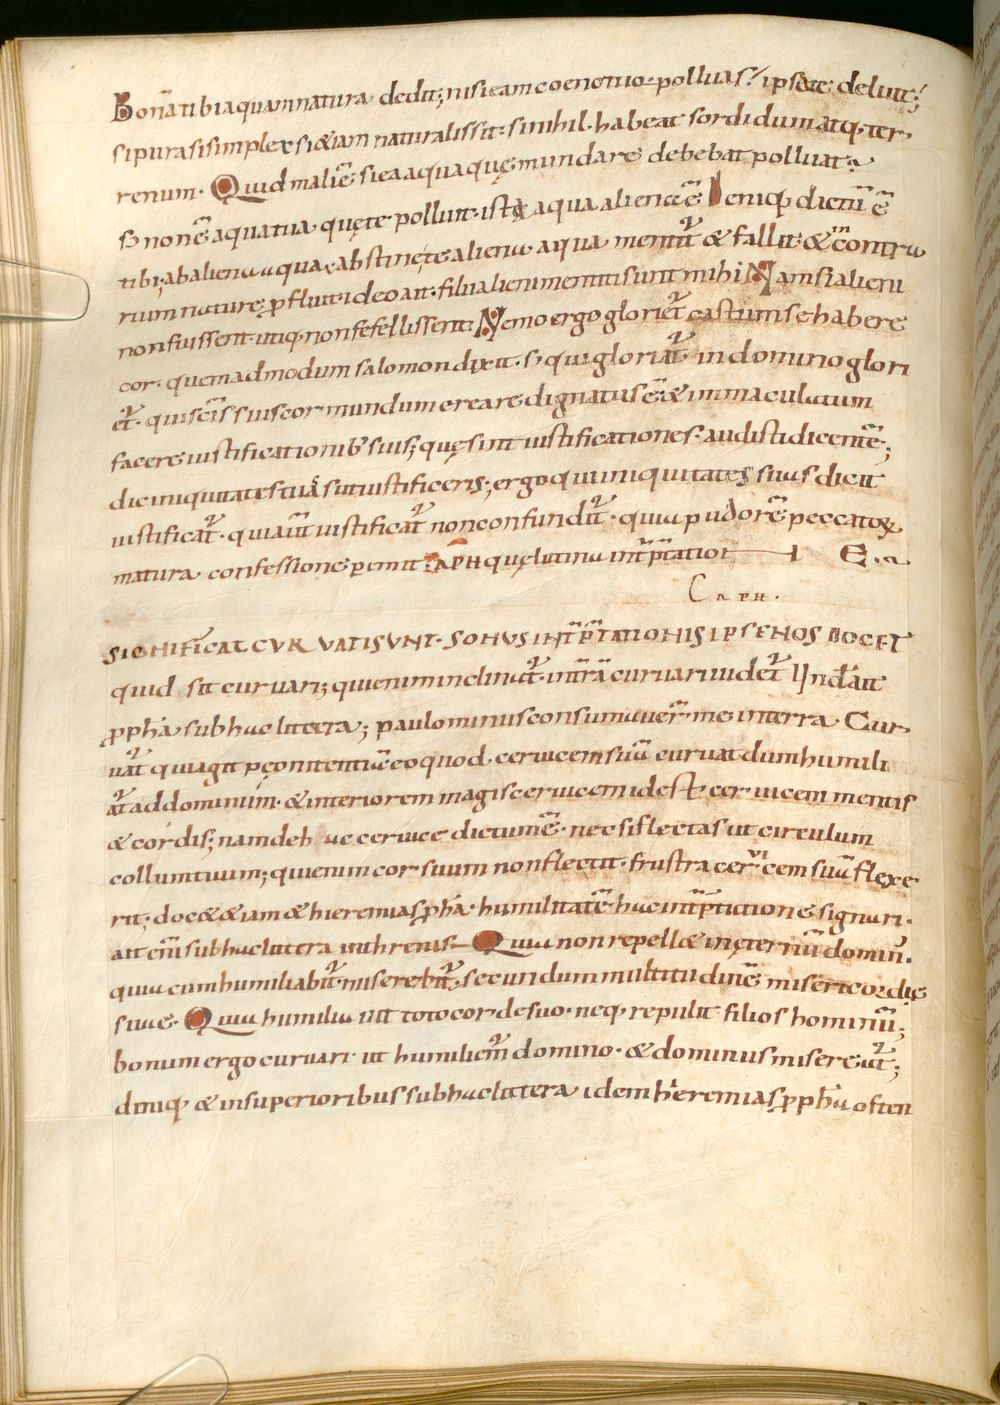 Bonā tibi aquam natura dedit; nisi eam coeno tuo polluas? ipsa te deluit;
si pura si simplex si &iam naturalis sit. si nihil habeat sordidum atq; ter
renum. Quid mali ē si ea aqua quę mundare debebat polluat?
s; non ē aqua tua quę te polluit. ista aqua aliena ē Deniq; dictū ē
tibi; ab aliena aqua abstinete aliena aqua mentit̃ & fallit. & contra
rium naturę ꝓfluit. ideo ait. filii alieni mentiti sunt mihi Nam si alieni
non fuissent. utiq; non fefellissent. Nemo ergo glori&̃ castum se habere
cor. quemadmodum salomon dixit. s; qui gloriat̃ in domino glori
&̃. qui scīs suis cor mundum creare dignatus ē & immaculatum
facere iustificationib; suis; quę sint iustificationes. audisti dicentē;
dic iniquitates tuas ut iustificeris; ergo qui iniquitates suas dicit
iustificat̃. qui aūt iustificat̃ non confundit̃. quia pudorē peccatoꝝ
matura confessione perimit. CAPH quę latina int̃p̃tatione
CAPH.
SIGNIFICAT CURVATI SUNT. SONUS INT̃P̃TATIONIS IPSE NOS DOCET
quid sit curvari; qui enim inclinat̃. in t̃rā curvari uidet̃ Inde ait
ꝓph&a sub hac littera; paulo minus consumauer̄ me in terra Cur
uat̃ qui agit pęnitentiā eo quod ceruicem suā curuat dum humili
at̃ ad dominum. & interiorem magis ceruicem id est ceruicem mentis
& cordis; nam de hac ceruice dictum ē. nec si flectas ut circulum
collum tuum; qui enim cor suum non flectit. frustra ceruicem suā flexe
rit; doc& &iam & hieremias ꝓph&a humilitatē hac int̃p̃tatione signari.
ait enī sub hac littera in threnis Quia non repell& in ęternū domiñ.
quia cum humiliabit̃. miserebit̃. secundum multitudinē misericordię
suae. Quia humiliauit toto corde suo. neq; repulit filios hominū;
bonum ergo curuari ut humiliem̃ domino. & dominus misereat̃;
deniq; & in superioribus sub hac littera idem hieremias ꝓph&a osten